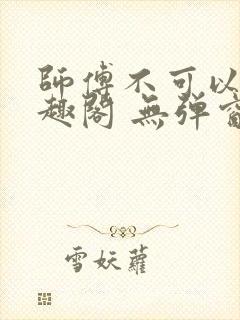 師傅不可以
趣閣 無彈
雪妖蘿